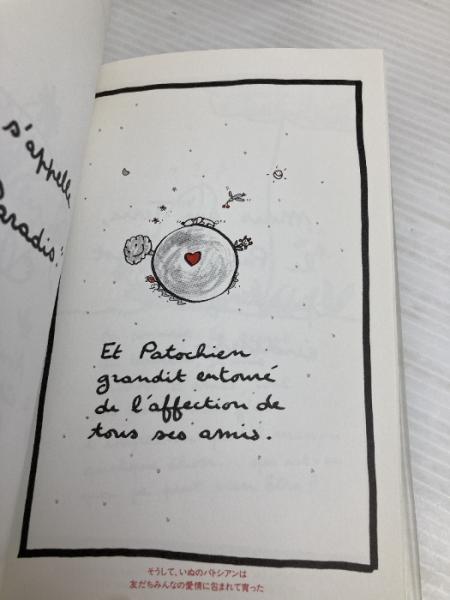 s'appelle
Paradis".
Et Patochien
grandit entouré
de l'affection de
tous ses amis.
そうして、いぬのパトシアンは
友だちみんなの愛情に包まれて育った